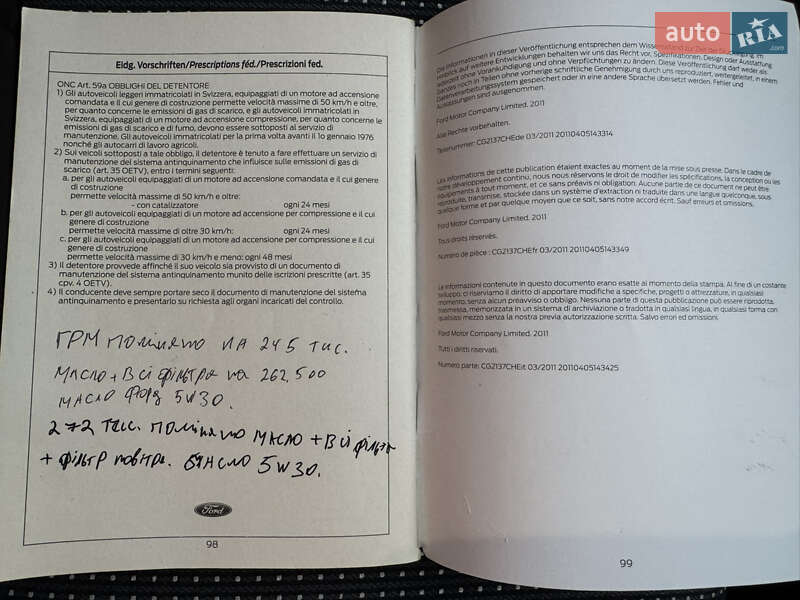 Eidg. Vorschriften/Prescriptions féd./Prescrizioni fed.
ONC Art. 59a OBBLIGHI DEL DETENTORE
1) Gli autoveicoli leggeri immatricolati in Svizzera, equipaggiati di un motore ad accensione
comandata e il cui genere di costruzione permette velocità massime di 50 km/h e oltre,
per quanto concerne le emissioni di gas di scarico, e gli autoveicoli immatricolati in
Svizzera, equipaggiati di un motore ad accensione per compressione, per quanto concerne le
emissioni di gas di scarico e di fumo, devono essere sottoposti al servizio di
manutenzione. Gli autoveicoli immatricolati per la prima volta avanti il 1o gennaio 1976
nonché gli autocarri di lavoro agricoli.
2) Sui veicoli sottoposti a tale obbligo, il detentore è tenuto a fare effettuare un servizio di
manutenzione del sistema antinquinamento che influisce sulle emissioni di gas di
scarico (art. 35 OETV), entro i termini seguenti:
a. per gli autoveicoli equipaggiati di un motore ad accensione comandata e il cui genere
di costruzione
permette velocità massime di 50 km/h e oltre:
- con catalizzatore ogni 24 mesi
b. per gli autoveicoli equipaggiati di un motore ad accensione per compressione e il cui
genere di costruzione
permettono velocità massime di oltre 30 km/h: ogni 24 mesi
c. per gli autoveicoli equipaggiati di un motore ad accensione per compressione e il cui
genere di costruzione
permette velocità massime di 30 km/h e meno: ogni 48 mesi
3) Il detentore provvede affinché il suo veicolo sia provvisto di un documento di
manutenzione del sistema antinquinamento munito delle iscrizioni prescritte (art. 35
cpv. 4 OETV).
4) Il conducente deve sempre portare seco il documento di manutenzione del sistema
antinquinamento e presentarlo su richiesta agli organi incaricati del controllo.
ГРМ поміняно на 245 тис.
Масло + всі фільтра на 262,500
масло Форд 5W30.
272 тис. поміняно масло + всі фільтра
+ фільтр повітря. масло 5W30.
Ford
98
Die Informationen in dieser Veröffentlichung entsprechen dem Wissensstand zur Zeit der Drucklegung. Im
Hinblick auf weitere Entwicklungen behalten wir uns das Recht vor, Spezifikationen, Design oder Ausstattung
jederzeit ohne Vorankündigung und ohne Verpflichtungen zu ändern. Diese Veröffentlichung darf weder als
Ganzes noch in Teilen ohne vorherige schriftliche Genehmigung durch uns reproduziert, weitergeleitet, in einem
Datenverarbeitungssystem gespeichert oder in eine andere Sprache übersetzt werden. Fehler und
Auslassungen sind ausgenommen.
Ford Motor Company Limited. 2011
Alle Rechte vorbehalten.
Teilenummer: CG2137CHEde 03/2011 20110405143314
Les informations de cette publication étaient exactes au moment de la mise sous presse. Dans le cadre de
notre développement continu, nous nous réservons le droit de modifier les spécifications, la conception ou les
équipements à tout moment, et ce sans préavis ni obligation. Aucune partie de ce document ne peut être
reproduite, transmise, stockée dans un système d'extraction ni traduite dans une langue quelconque, sous
quelque forme et par quelque moyen que ce soit, sans notre accord écrit. Sauf erreurs et omissions.
Ford Motor Company Limited. 2011
Tous droits réservés.
Numéro de pièce : CG2137CHEfr 03/2011 20110405143349
Le informazioni contenute in questo documento erano esatte al momento della stampa. Al fine di un costante
sviluppo, ci riserviamo il diritto di apportare modifiche a specifiche, progetto o attrezzature, in qualsiasi
momento, senza alcun preavviso o obbligo. Nessuna parte di questa pubblicazione può essere riprodotta,
trasmessa, memorizzata in un sistema di archiviazione o tradotta in qualsiasi lingua, in qualsiasi forma con
qualsiasi mezzo senza la nostra previa autorizzazione scritta. Salvo errori ed omissioni.
Ford Motor Company Limited. 2011
Tutti i diritti riservati.
Numero parte: CG2137CHEit 03/2011 20110405143425
99
auto RIA.com